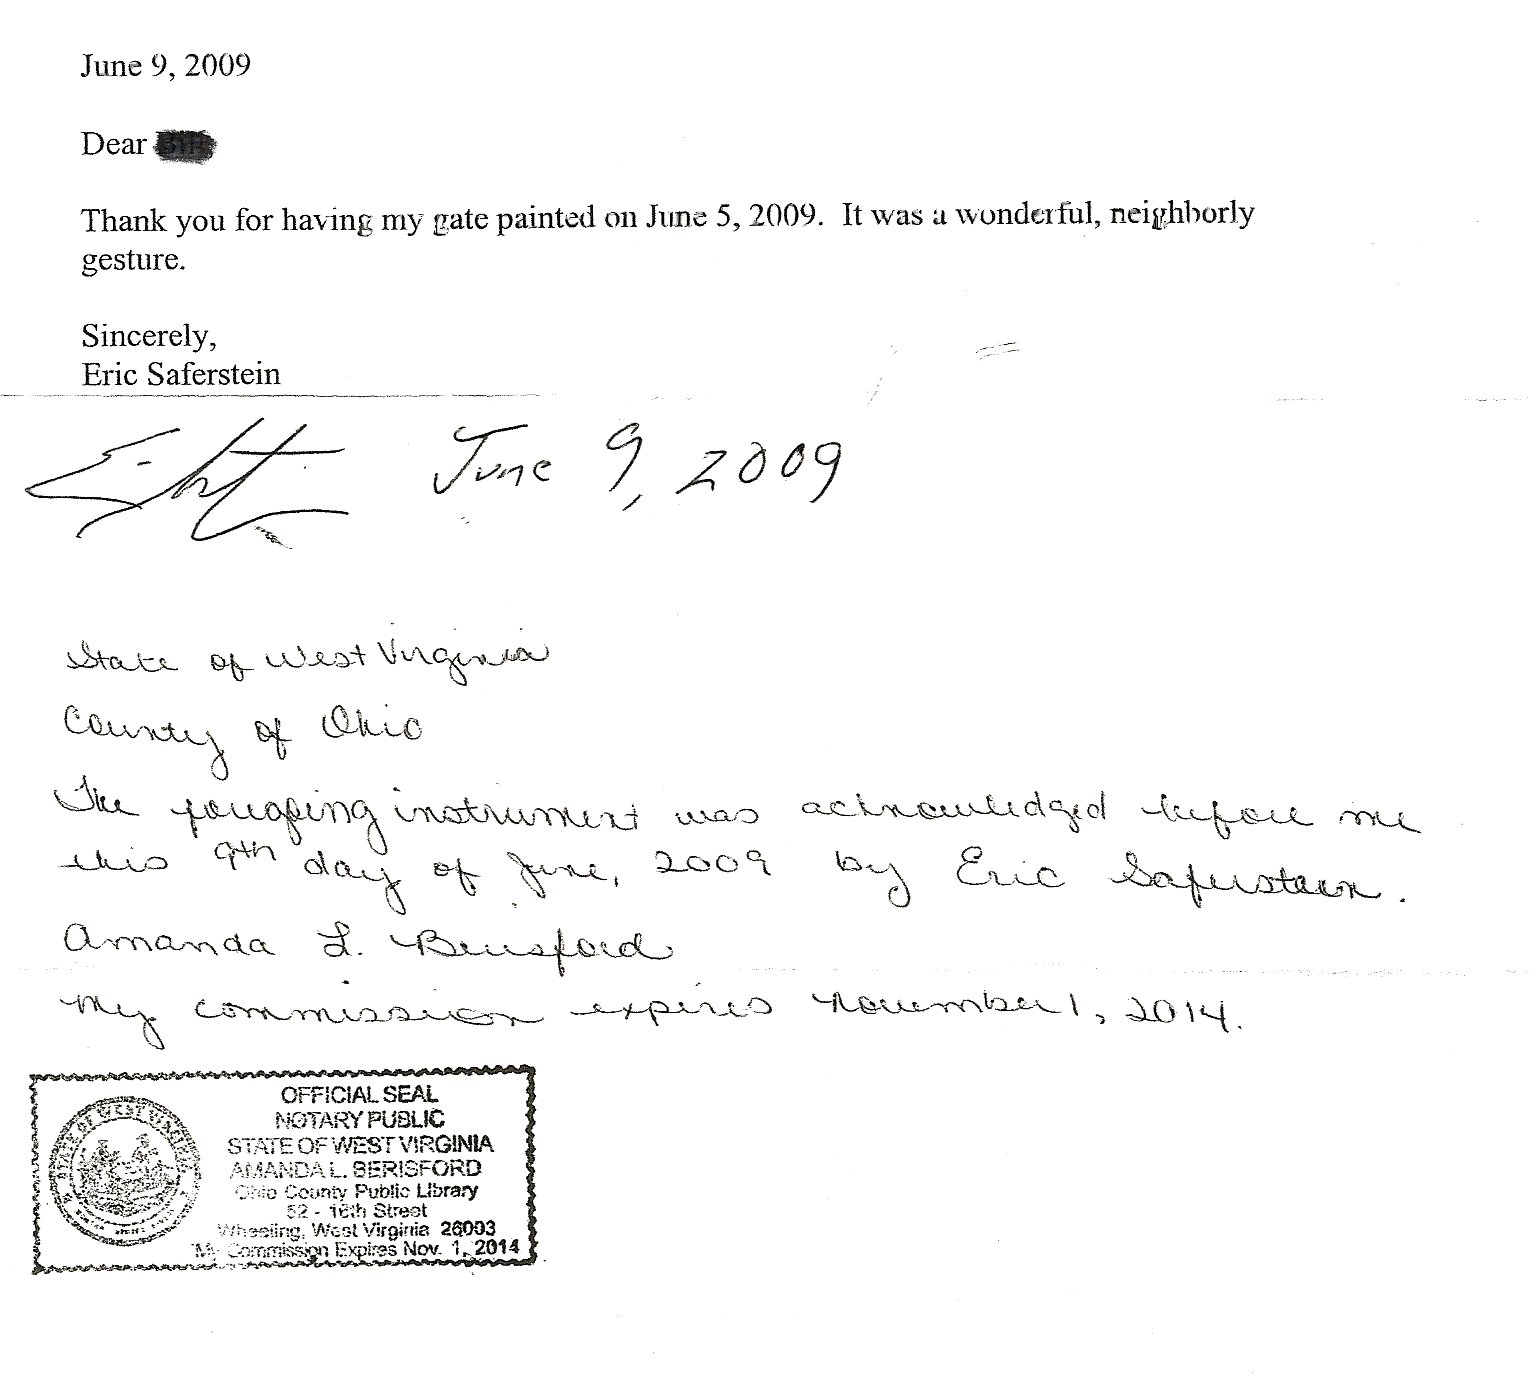 June 9, 2009
Dear
Thank you for having my gate painted on June 5, 2009. It was a wonderful, neighborly
gesture.
Sincerely,
Eric Saferstein
June 9, 2009
State of West Virginia
County of Ohio
The foregoing instrument was acknowledged before me
this 9th day of June, 2009 by Eric Saferstein.
Amanda L. Berisford
My commission expires November 1, 2014.
OFFICIAL SEAL
NOTARY PUBLIC
STATE OF WEST VIRGINIA
AMANDA L. BERISFORD
Ohio County Public Library
52 - 16th Street
Wheeling, West Virginia 26003
My Commission Expires Nov. 1, 2014
STATE OF WEST VIRGINIA